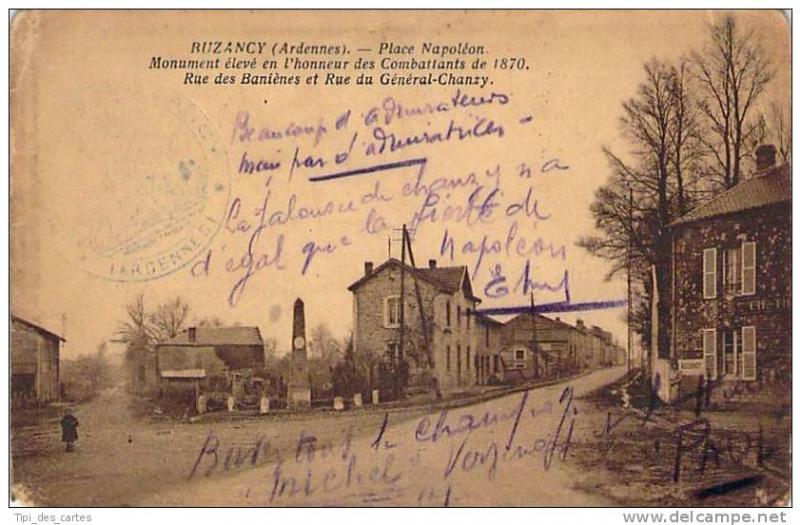 BUZANCY (Ardennes). — Place Napoléon.
Monument élevé en l'honneur des Combattants de 1870.
Rue des Baniènes et Rue du Général-Chanzy.
Beaucoup d'admirateurs
mais pas d'admiratrices -
La Jalousie de chanzy n'a
d'égal que la fierté de
Napoléon
(ARDENNES)
Buvez tous le champ
"Michel"
Tipi_des_cartes
www.delcampe.net